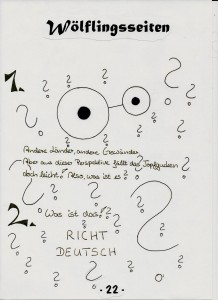 Wölflingsseiten
1.
Andere Länder, andere Gewänder.
Aber aus dieser Perspektive fällt das Topfgucken
doch leicht! Also, was ist es?
2.
Was ist das?
RICHT
DEUTSCH
· 22 ·